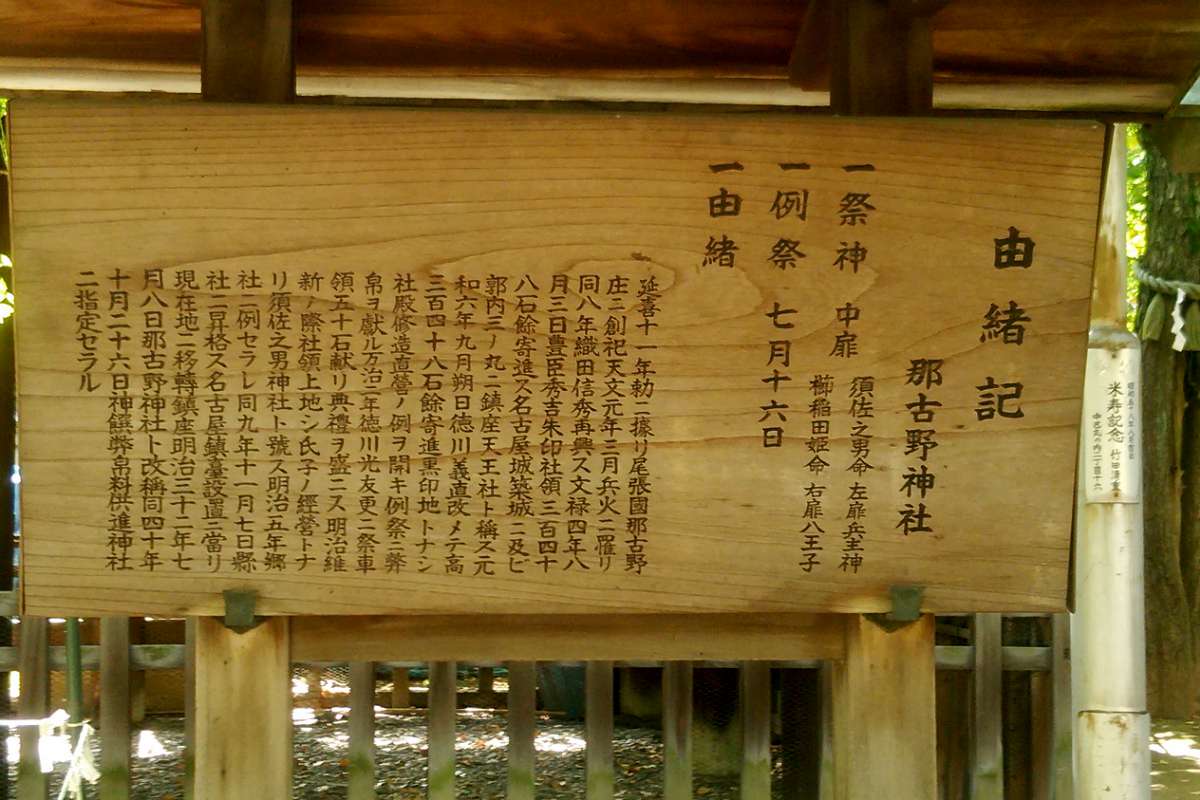 由緒記
那古野神社
一祭神 中扉 須佐之男命 左扉兵主神
櫛稲田姫命 右扉八王子
一例祭 七月十六日
一由緒
延喜十一年勅ニ據リ尾張國那古野
庄ニ創祀天文元年三月兵火ニ罹リ
同八年織田信秀再興ス文禄四年八
月三日豊臣秀吉朱印社領三百四十
八石餘寄進ス名古屋城築城ニ及ビ
郭内三ノ丸ニ鎮座天王社ト稱ス元
和六年九月朔日徳川義直改メテ高
三百四十八石餘寄進黒印地トナシ
社殿修造直營ノ例ヲ開キ例祭ニ幣
帛ヲ獻ル万治二年徳川光友更ニ祭車
領五十石献リ典禮ヲ盛ニス明治維
新ノ際社領上地シ氏子ノ經營トナ
リ須佐之男神社ト號ス明治五年郷
社ニ例セラレ同九年十一月七日縣
社ニ昇格ス名古屋鎮臺設置ニ當リ
現在地ニ移轉鎮座明治三十二年七
月八日那古野神社ト改稱同四十年
十月二十六日神饌幣帛料供進神社
ニ指定セラル
米寿記念 竹田